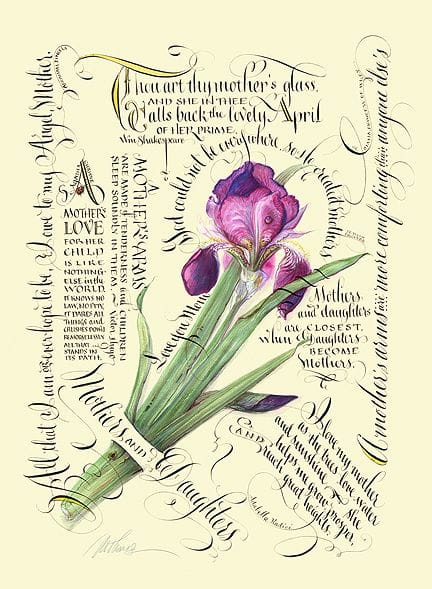 Thou art thy mother's glass,
AND SHE IN THEE
Calls back the lovely April
OF HER PRIME.
Wm Shakespeare
God could not be everywhere, so He created mothers
All that I am or ever hope to be, I owe to my Angel Mother.
A
MOTHER'S
LOVE
FOR HER
CHILD
IS LIKE
NOTHING
ELSE in the
WORLD.
IT KNOWS NO
LAW, NO PITY,
IT DARES ALL
THINGS and
CRUSHES DOWN
REMORSELESSLY
ALL THAT
STANDS IN
ITS PATH.
A MOTHER'S ARMS
ARE MADE of TENDERNESS and CHILDREN
SLEEP SOUNDLY IN THEM.
Victor Hugo
Mothers
and daughters
are CLOSEST,
when Daughters
BECOME
Mothers.
A mother's arms are more comforting than anyone else's
Mothers AND Daughters
I love my mother
as the trees love water
and sunshine ~ she
helps me grow, prosper,
AND
reach great heights.